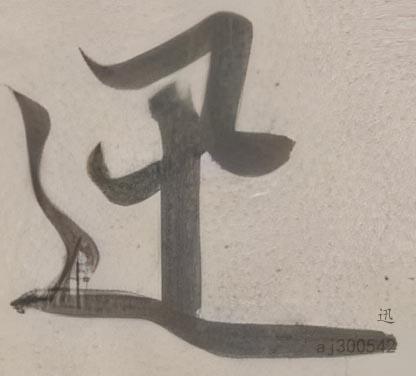 迅
迅
aj300542